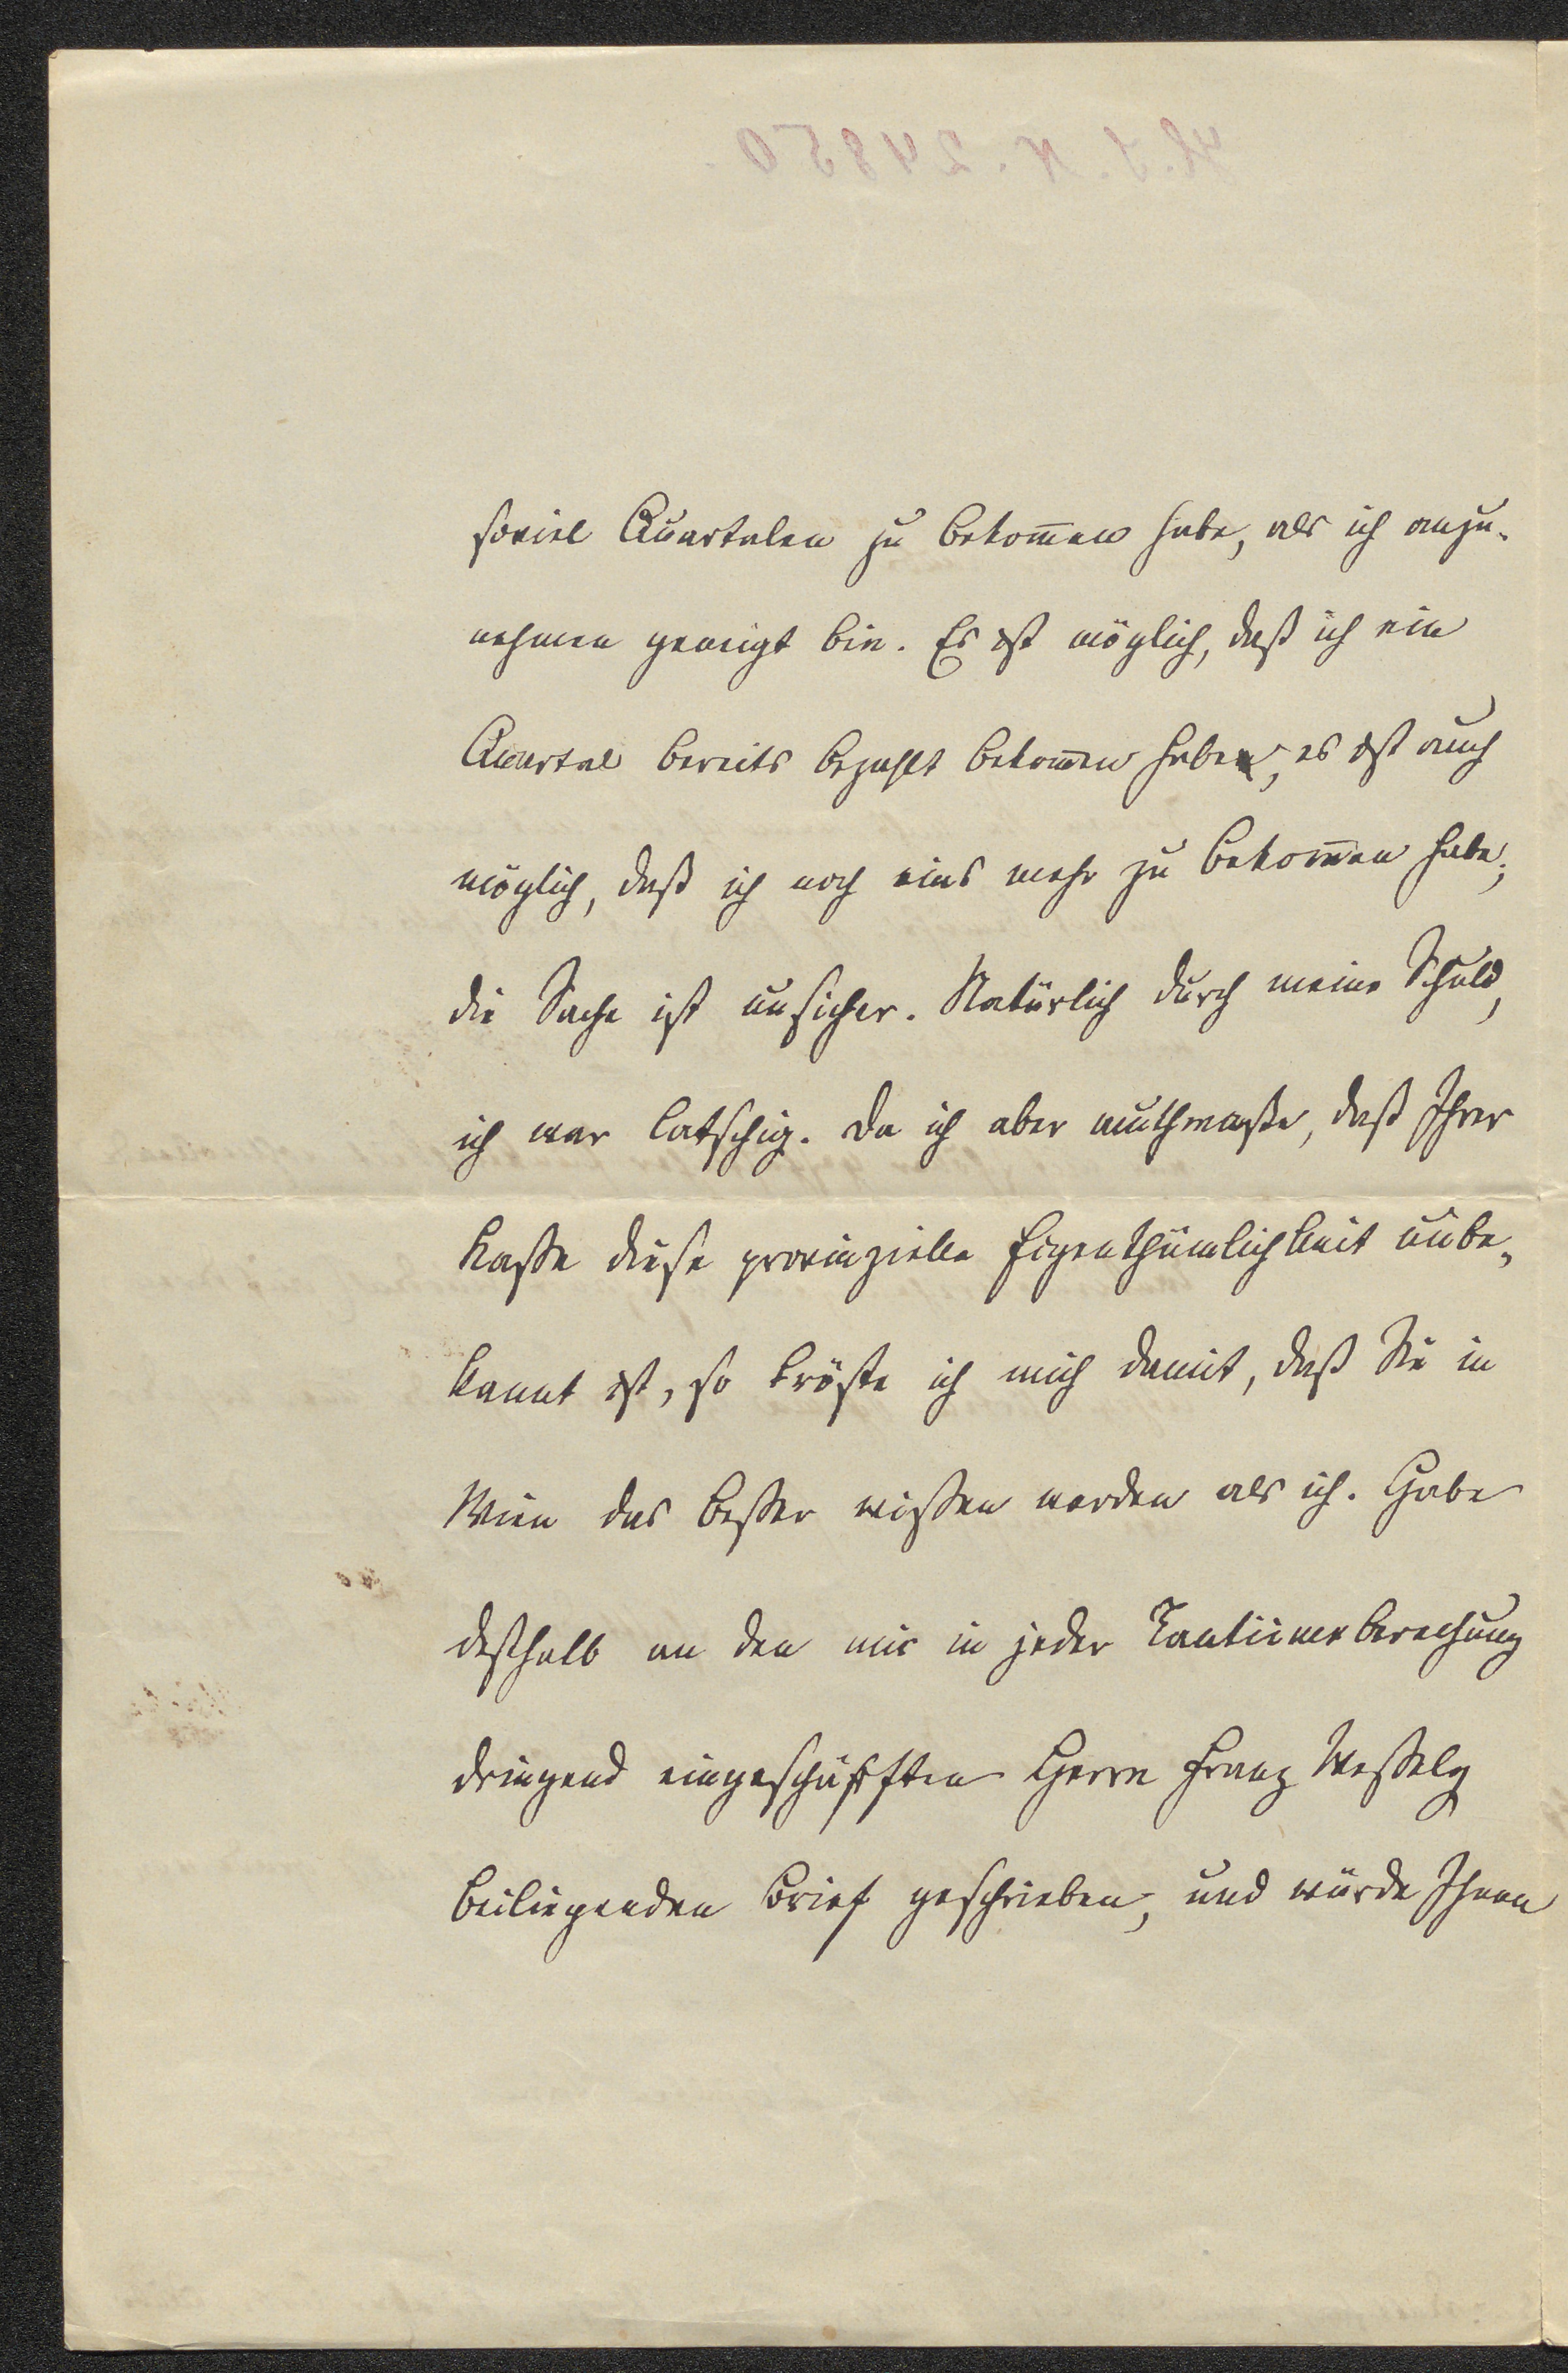 soviel Quartalen zu bekom̅en habe, als ich anzu-
nehmen geneigt bin. Es ist möglich, daß ich ein
Quartal bereits bezahlt bekom̅en habe, es ist auch
möglich, daß ich noch eins mehr zu bekom̅en habe;
die Sache ist unsicher. Natürlich durch meine Schuld,
ich war latschig. Da ich aber muthmaße, daß Ihrer
Kasse diese provinzielle Eigenthümlichkeit unbe-
kannt ist, so tröste ich mich damit, daß Sie in
Wien das besser wissen werden als ich. Habe
deßhalb an den mir in jeder Tantiimeberechung
dringend eingeschärften Herrn Franz Wessely
beiliegenden Brief geschrieben, und würde Ihnen